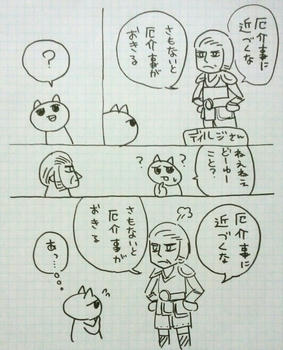 厄介事に
近づくな
さもないと
厄介事が
おきる
デルレジさん
?
ねえねえ
どーゆー
こと?
?
?
厄介事に
近づくな
さもないと
厄介事が
おきる
あっ…